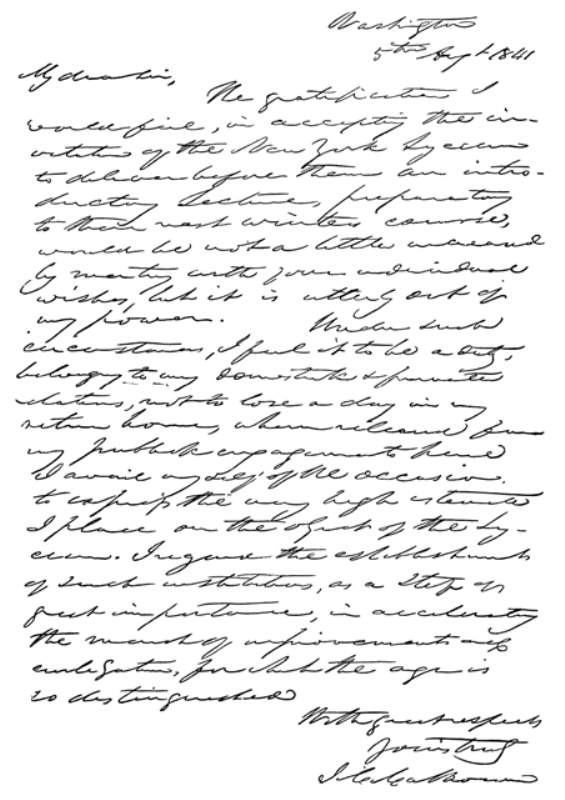 Washington
5th Augt 1841
My dear Sir,
The gratification I
would feel, in accepting the in-
vitation of the New York Lyceum
to deliver before them an intro-
ductory Lecture, preparatory
to their next winters course,
would be not a little increased
by meeting with your individual
wishes, but it is utterly out of
my power. Under such
circumstances, I feel it to be a duty,
belonging to my domestick & private
relations, not to lose a day in my
return home, when released from
my publick engagements here
I avail myself of the occasion
to express the very high estimate
I place on the object of the Ly-
ceum. I regard the establishments
of such institutions, as a step of
great importance, in accelerating
the march of improvements and
civilization, for which the age is
so distinguished
With great respect
Yours truly
J. C. Calhoun